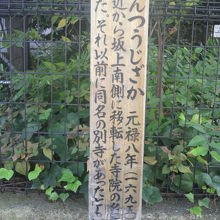 んつうじざか
元禄八年(一六九五
近から坂上南側に移転した寺院の名
た。それ以前に同名の別寺があったと